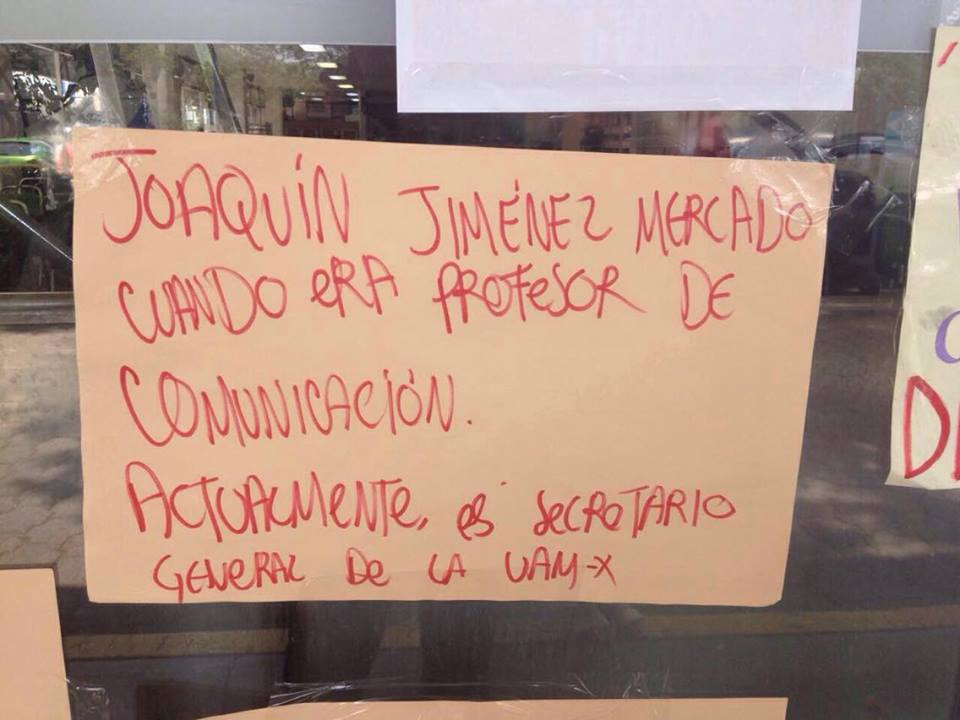 JOAQUÍN JIMÉNEZ MERCADO
CUANDO ERA PROFESOR DE
COMUNICACIÓN.
ACTUALMENTE, ES SECRETARIO
GENERAL DE LA UAM-X